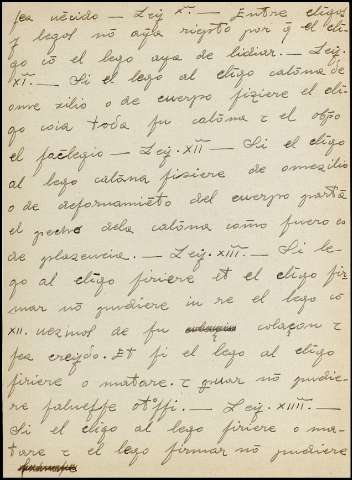 sea uēcido — Ley X. — Entre cligos
y legos nō aya riepto por q el cli-
go cō el lego aya de lidiar. — Ley.
XI. — Si el lego al cligo calōna de
ome zilio o de cuerpo fiziere el cli-
go coia toda su calōna τ el obpo
el saclegio — Ley. XII — Si el cligo
al lego calōna fiziere de omezilio
o de deformamiēto del cuerpo partā
el pecho dela calōna como fuero es
de plazencia. — Ley. XIII. — Si le-
go al cligo firiere et el cligo fir-
mar nō pudiere iu re el lego cō
XII. uezinos de su colaçon τ
sea creydo. Et si el lego al cligo
firiere o matare. τ firmar nō pudie-
re salvesse otossi. — Ley. XIIII. —
Si el cligo al lego firiere o ma-
tare τ el lego firmar nō pudiere